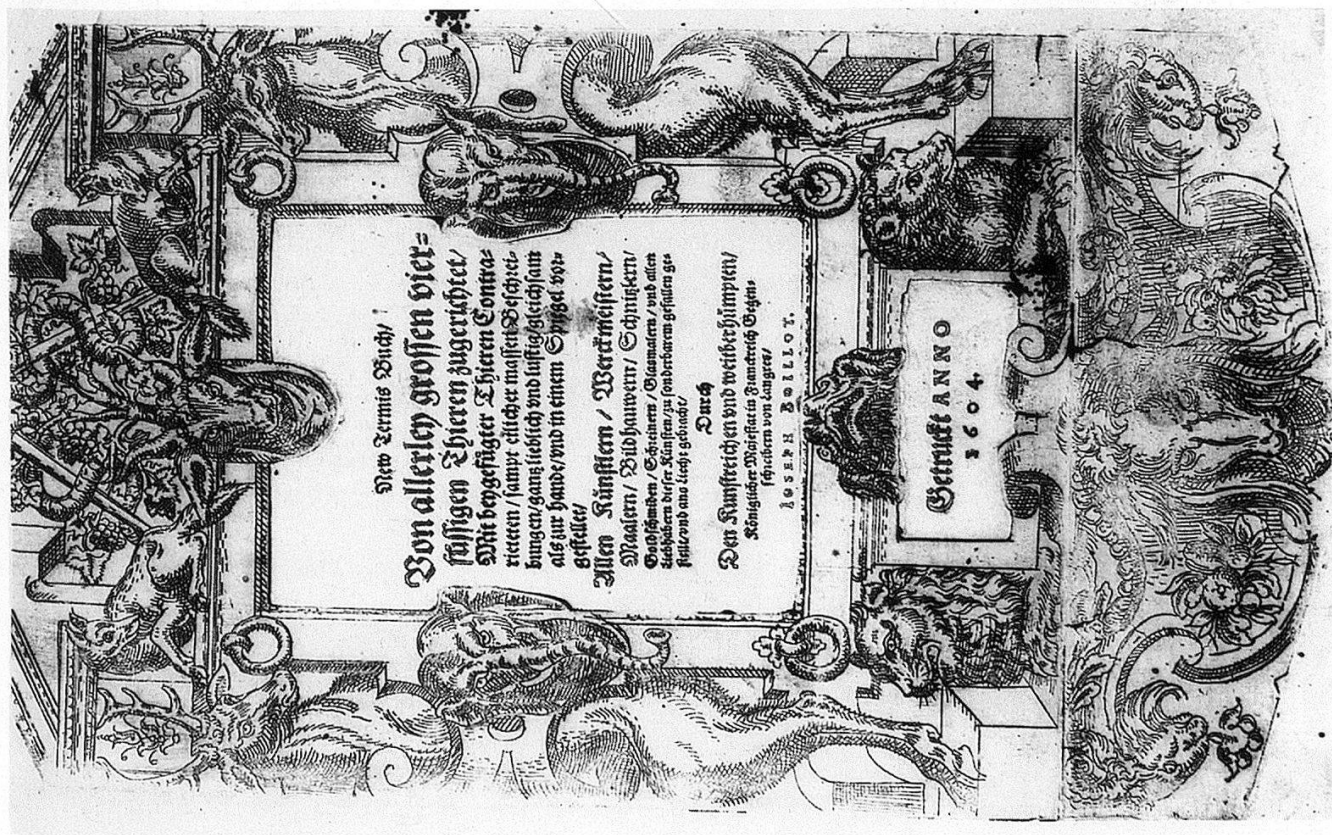 New Termis Buch/
Von allerley grossen vier-
füssigen Thieren zugerichtet/
Mit beygefügter Thieren Contra-
rieteten / sampt etlicher massen Beschrei-
bungen/ gantz lieblich vnd lustig/ gleichsam
als zur hande/ vnd in einem Spiegel vor-
gestellet/
Allen Künstlern / Werckmeistern/
Maalern/ Bildhauwern/ Schnitzern/
Goldschmiden / Schreinern / Glasmalern / vnd allen
Liebhabern dieser Künsten/ zu sonderbarem gefallen ge-
stellt/ vnd ans Liecht gebracht/
Durch
Den Kunstreichen vnd weitberhümpten/
Königlicher Maiestat in Franckreich Gegen-
schreibern von Langres/
IOSEPH BOILLOT.
Getruckt ANNO
1604.